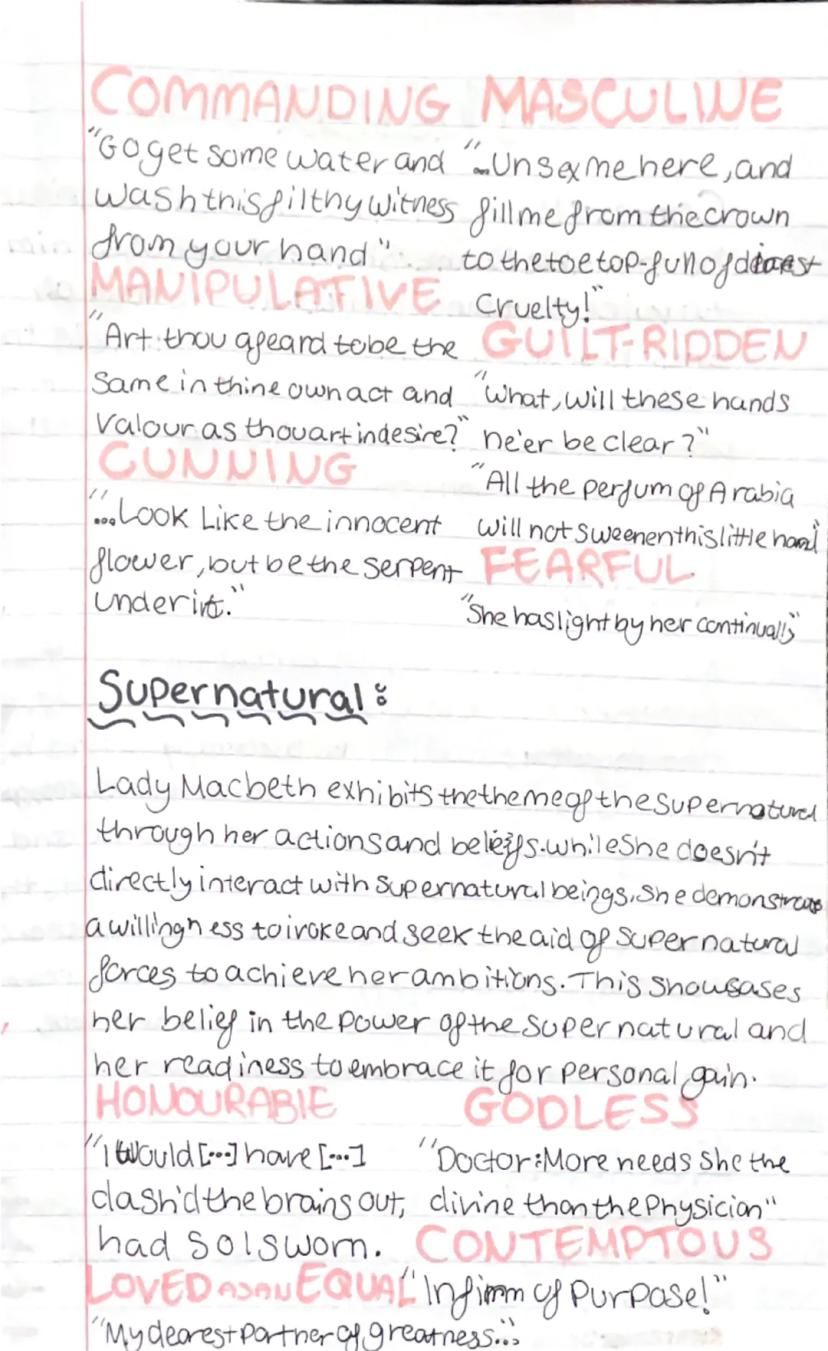 COMMANDING
"Go get some water and
wash this filthy witness
from your hand"
MANIPULATIVE
"Art thou afeard to be the
same in thine own act and
valour as thou art in desire?"
CUNNING
"...Look Like the innocent
flower, but be the serpent
under it."
MASCULINE
"...Unsex me here, and
fill me from the crown
to the toe top-full of direst
Cruelty!"
GUILT-RIDDEN
"What, will these hands
ne'er be clear?"
"All the perfum of Arabia
will not sweenen this little hand
FEARFUL
"She has light by her continually"
Supernatural:
Lady Macbeth exhibits the theme of the supernatural
through her actions and beliefs. while She doesn't
directly interact with supernatural beings, she demonstrates
a willingness to ivoke and seek the aid of supernatural
forces to achieve her ambitions. This showsases
her belief in the power of the supernatural and
her readiness to embrace it for personal gain.
HONOURABLE
"I would [...] have [...]
dash'd the brains out,
had so I sworn.
LOVED AS AN EQUAL
"My dearest partner of greatness..."
GODLESS
"Doctor: More needs she the
divine than the Physician"
CONTEMPTOUS
"Infirm of Purpose!"